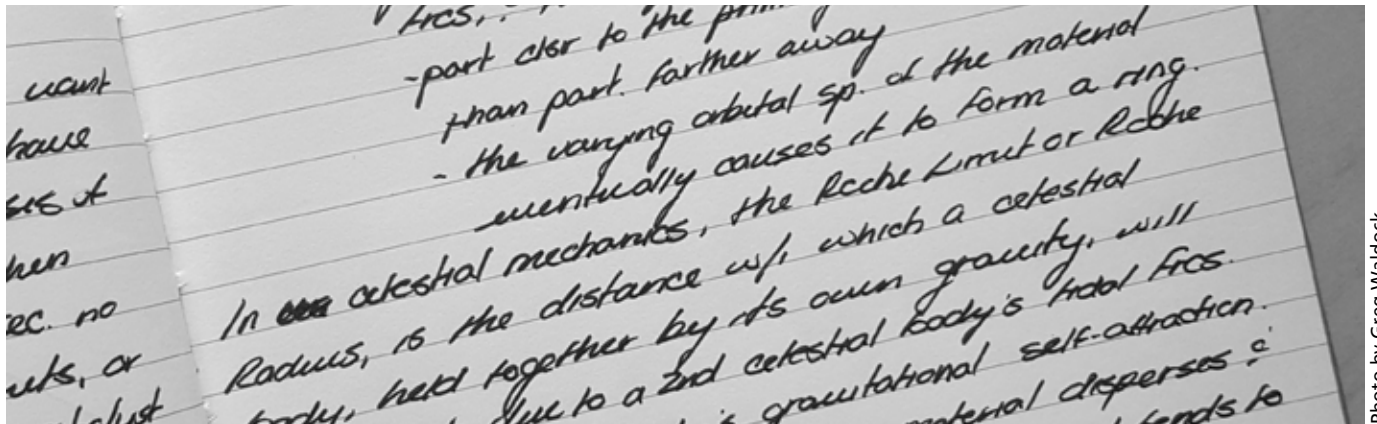 want
have
hen
ec. no
or
frcs,
-part clsr to the
than part. farther away
- the varying orbital sp. of the material
eventually causes it to form a ring.
In celestial mechanics, the Roche Limit or Roche
Radius, is the distance w/i which a celestial
body, held together by its own gravity, will
due to a 2nd celestial body's tidal frcs.
gravitational self-attraction.
material disperses &
tends to
Photo by Greg Waldock